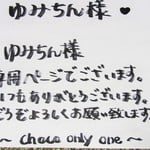 ゆみちん様 ♥
ゆみちん様
専用ページでございます。
いつもありがとうございます。
どうぞよろしくお願い致します
～ choco only one ～